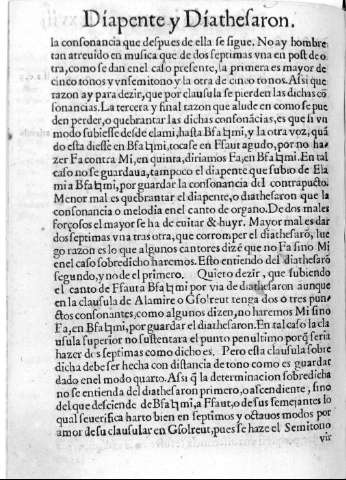 Diapente y Diathesaron.
la consonancia que despues de ella se sigue. No ay hombre
tan atreuido en musica que de dos septimas vna en post de o
tra, como se dan enel caso presente, la primera es mayor de
cinco tonos y vn semitono y la otra de cinco tonos. Assi que
razon ay para dezir, que por clausula se pierden las dichas cō
sonancias. La tercera y final razon que alude en como se pue
den perder, o quebrantar las dichas consonácias, es que si vn
modo subiesse desde elami, hasta Bfa♮mi, y la otra voz, quá
do esta diesse en Bfa♮mi, tocase en Ffaut agudo, por no ha
zer Fa contra Mi, en quinta, diriamos Fa, en Bfa♮mi. En tal
caso no se guardaua, tampoco el diapente que subio de Ela
mi a Bfa♮mi, por guardar la consonancia del contrapucto.
Menor mal es quebrantar el diapente, o diathesaron que la
consonancia o melodia enel canto de organo. De dos males
forçosos el mayor se ha de euitar & huyr. Mayor mal es dar
dos septimas vna tras otra, que corromper el diathesarõ, lue
go razon es lo que algunos cantores dizē que no Fa sino Mi
enel caso sobredicho haremos. Esto entiendo del diathesarō
segundo, y no de el primero. Quiero dezir, que subiendo
el canto de Ffauta Bfa♮mi por via de diathesaron aunque
en la clausula de Alamire o Gsolreut tenga dos o tres pun
ctos consonantes, como algunos dizen, no haremos Mi sino
Fa, en Bfa♮mi, por guardar el diathesaron. En tal caso la cla
usula superior no sustentara el punto penultimo porq̄ seria
hazer dos septimas como dicho es. Pero esta clausula sobre
dicha debe ser hecha con distancia de tono como es guardar
dado enel modo quarto. Assi q̄ la determinacion sobredicha
no se entienda del diathesaron primero, o ascendiente, sino
del que desciende de Bfa♮mi, a Ffaut, o de sus semejantes lo
qual se uerifica harto bien en septimos y octauos modos por
amor de su clausular en Gsolreut, pues se haze el Semitono
vir